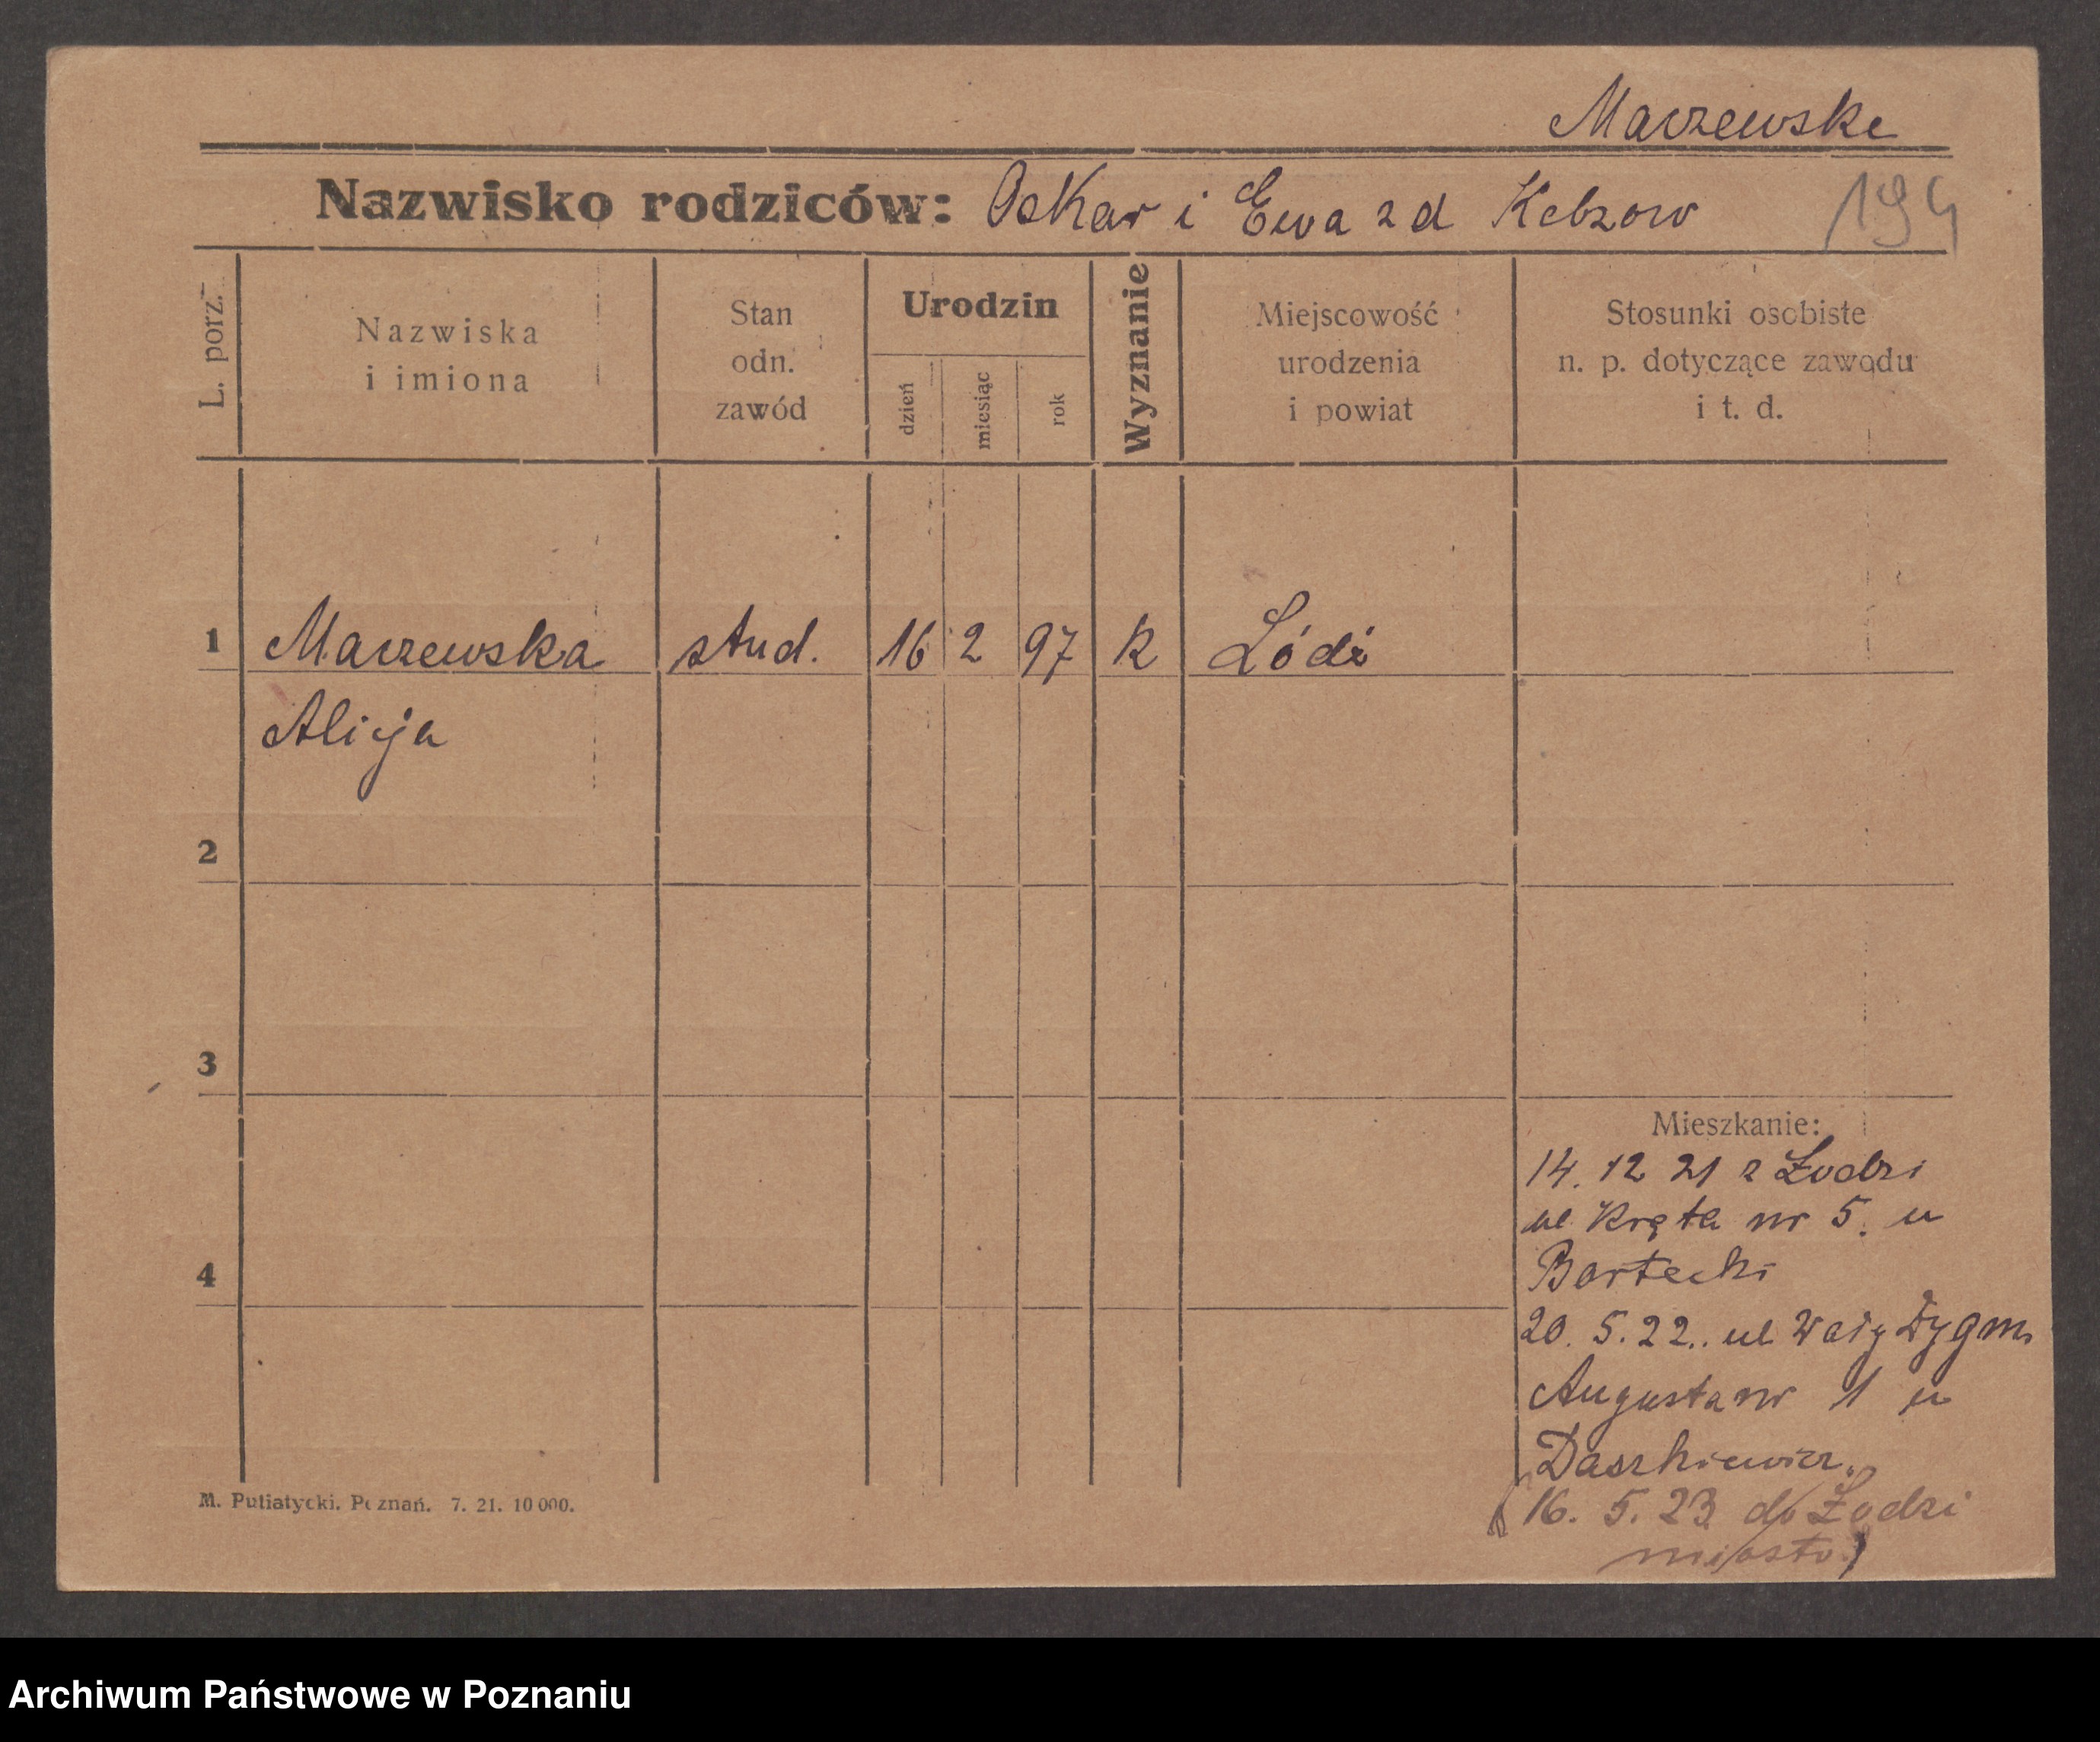 Maczewska
Nazwisko rodziców: Oskar i Ewa z d Kebzow
194
L. porz.
Nazwiska
i imiona
Stan
odn.
zawód
Urodzin
dzień
miesiąc
rok
Wyznanie
Miejscowość
urodzenia
i powiat
Stosunki osobiste
n. p. dotyczące zawodu
i t. d.
1 Maczewska stud. 16 2 97 k Łódź
Alicja
2
3
4
Mieszkanie:
14. 12 21 z Łodzi
ul Kręta nr 5. u
Bartecki
20. 5. 22. ul Wały Zygm.
Augusta nr 1 u
Daszkiewicz.
16. 5. 23 do Łodzi
miasto
M. Putiatycki. Poznań. 7. 21. 10 000.
Archiwum Państwowe w Poznaniu